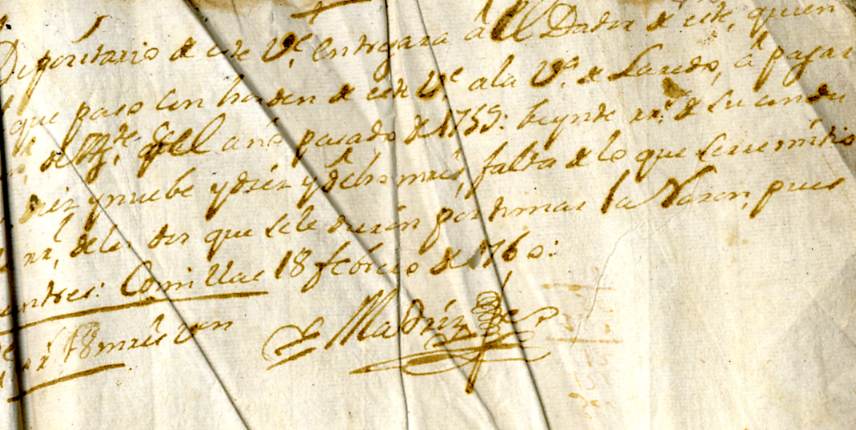 Depositario de este Vᵉ. entregara a el Dador de este, quien
que paso con horden de este Vᵉ. a la Vᵃ. de Laredo, a pagar
del año pasado de 1759: beynte rrˢ. de su
diez y nuebe y diez y ocho mrs, falta de lo que se rremitio
rrˢ. de los dos que se le dieron por tomar la Razon, pues
Comillas 18 febrero de 1760:
18 mrs von
Madrid